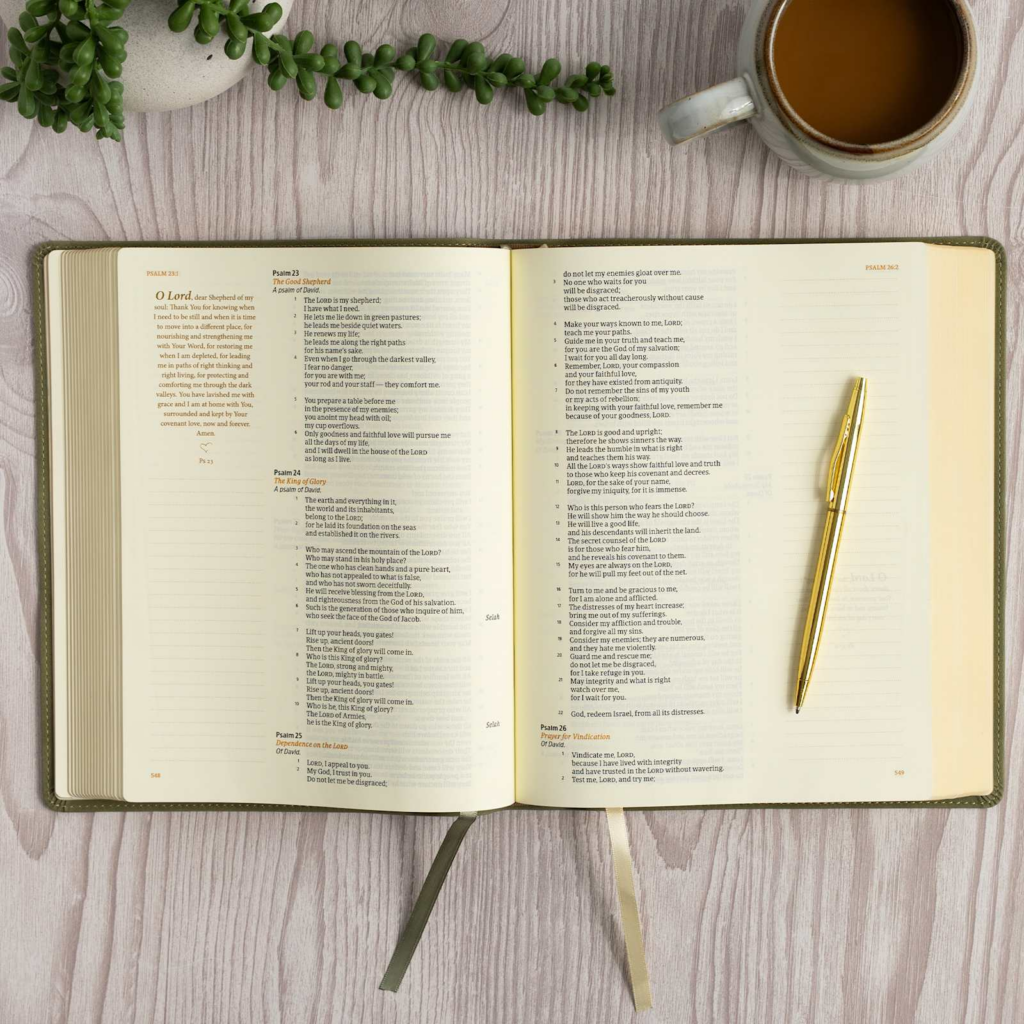 PSALM 23:1
O Lord, dear Shepherd of my
soul: Thank You for knowing when
I need to be still and when it is time
to move into a different place, for
nourishing and strengthening me
with Your Word, for restoring me
when I am depleted, for leading
me in paths of right thinking and
right living, for protecting and
comforting me through the dark
valleys. You have lavished me with
grace and I am at home with You,
surrounded and kept by Your
covenant love, now and forever.
Amen.
Ps 23
Psalm 23
The Good Shepherd
A psalm of David.
1 The LORD is my shepherd;
I have what I need.
2 He lets me lie down in green pastures;
he leads me beside quiet waters.
3 He renews my life;
he leads me along the right paths
for his name's sake.
4 Even when I go through the darkest valley,
I fear no danger,
for you are with me;
your rod and your staff — they comfort me.
5 You prepare a table before me
in the presence of my enemies;
you anoint my head with oil;
my cup overflows.
6 Only goodness and faithful love will pursue me
all the days of my life,
and I will dwell in the house of the LORD
as long as I live.
Psalm 24
The King of Glory
A psalm of David.
1 The earth and everything in it,
the world and its inhabitants,
belong to the LORD;
2 for he laid its foundation on the seas
and established it on the rivers.
3 Who may ascend the mountain of the LORD?
Who may stand in his holy place?
4 The one who has clean hands and a pure heart,
who has not appealed to what is false,
and who has not sworn deceitfully.
5 He will receive blessing from the LORD,
and righteousness from the God of his salvation.
6 Such is the generation of those who inquire of him,
who seek the face of the God of Jacob. Selah
7 Lift up your heads, you gates!
Rise up, ancient doors!
Then the King of glory will come in.
8 Who is this King of glory?
The LORD, strong and mighty,
the LORD, mighty in battle.
9 Lift up your heads, you gates!
Rise up, ancient doors!
Then the King of glory will come in.
10 Who is he, this King of glory?
The LORD of Armies,
he is the King of glory. Selah
Psalm 25
Dependence on the LORD
Of David.
1 LORD, I appeal to you.
2 My God, I trust in you.
Do not let me be disgraced;
548
do not let my enemies gloat over me.
3 No one who waits for you
will be disgraced;
those who act treacherously without cause
will be disgraced.
4 Make your ways known to me, LORD;
teach me your paths.
5 Guide me in your truth and teach me,
for you are the God of my salvation;
I wait for you all day long.
6 Remember, LORD, your compassion
and your faithful love,
for they have existed from antiquity.
7 Do not remember the sins of my youth
or my acts of rebellion;
in keeping with your faithful love, remember me
because of your goodness, LORD.
8 The LORD is good and upright;
therefore he shows sinners the way.
9 He leads the humble in what is right
and teaches them his way.
10 All the LORD's ways show faithful love and truth
to those who keep his covenant and decrees.
11 LORD, for the sake of your name,
forgive my iniquity, for it is immense.
12 Who is this person who fears the LORD?
He will show him the way he should choose.
13 He will live a good life,
and his descendants will inherit the land.
14 The secret counsel of the LORD
is for those who fear him,
and he reveals his covenant to them.
15 My eyes are always on the LORD,
for he will pull my feet out of the net.
16 Turn to me and be gracious to me,
for I am alone and afflicted.
17 The distresses of my heart increase;
bring me out of my sufferings.
18 Consider my affliction and trouble,
and forgive all my sins.
19 Consider my enemies; they are numerous,
and they hate me violently.
20 Guard me and rescue me;
do not let me be disgraced,
for I take refuge in you.
21 May integrity and what is right
watch over me,
for I wait for you.
22 God, redeem Israel, from all its distresses.
Psalm 26
Prayer for Vindication
Of David.
1 Vindicate me, LORD,
because I have lived with integrity
and have trusted in the LORD without wavering.
2 Test me, LORD, and try me;
PSALM 26:2
549